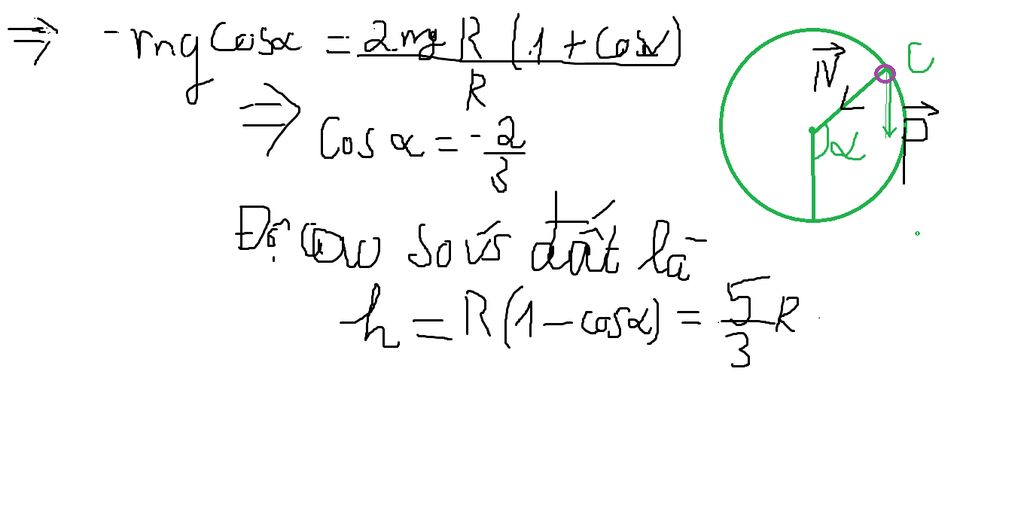 ⇒ -mg cosα = 2mgR(1 + cosα) / R
⇒ cosα = -2/3
Độ cao so với đất là
h = R(1 - cosα) = 5/3 R
N
C
α
P